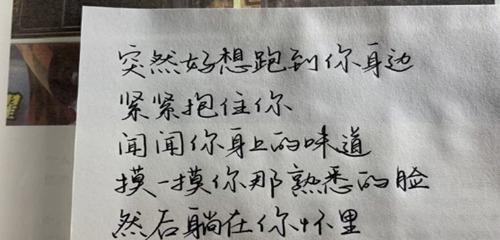 突然好想跑到你身边
紧紧抱住你
闻闻你身上的味道
摸一摸你那熟悉的脸
然后躺在你怀里